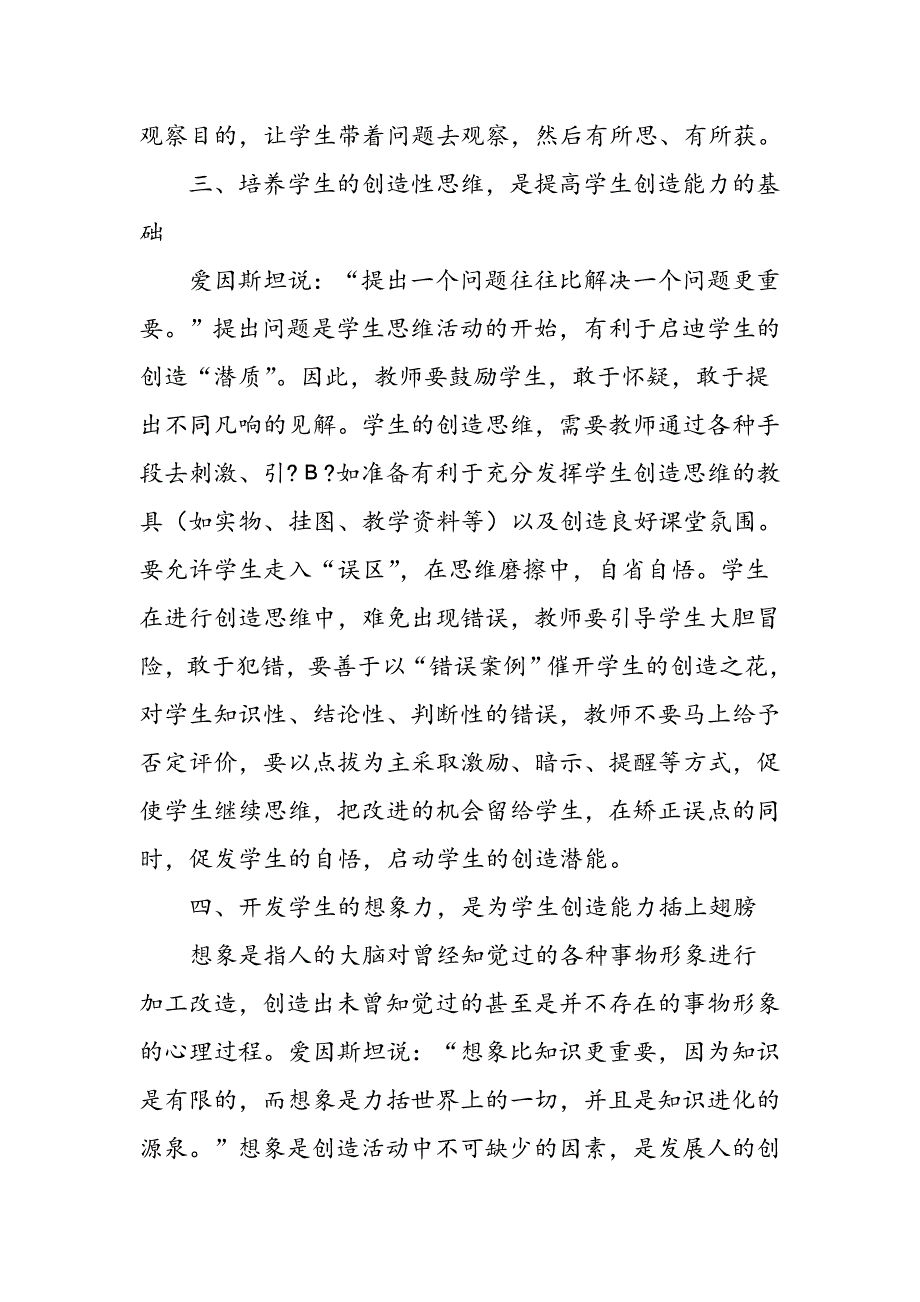 观察目的，让学生带着问题去观察，然后有所思、有所获。
三、培养学生的创造性思维，是提高学生创造能力的基
础
爱因斯坦说：“提出一个问题往往比解决一个问题更重
要。”提出问题是学生思维活动的开始，有利于启迪学生的
创造“潜质”。因此，教师要鼓励学生，敢于怀疑，敢于提
出不同凡响的见解。学生的创造思维，需要教师通过各种手
段去刺激、引?B?如准备有利于充分发挥学生创造思维的教
具（如实物、挂图、教学资料等）以及创造良好课堂氛围。
要允许学生走入“误区”，在思维磨擦中，自省自悟。学生
在进行创造思维中，难免出现错误，教师要引导学生大胆冒
险，敢于犯错，要善于以“错误案例”催开学生的创造之花，
对学生知识性、结论性、判断性的错误，教师不要马上给予
否定评价，要以点拔为主采取激励、暗示、提醒等方式，促
使学生继续思维，把改进的机会留给学生，在矫正误点的同
时，促发学生的自悟，启动学生的创造潜能。
四、开发学生的想象力，是为学生创造能力插上翅膀
想象是指人的大脑对曾经知觉过的各种事物形象进行
加工改造，创造出未曾知觉过的甚至是并不存在的事物形象
的心理过程。爱因斯坦说：“想象比知识更重要，因为知识
是有限的，而想象是力括世界上的一切，并且是知识进化的
源泉。”想象是创造活动中不可缺少的因素，是发展人的创